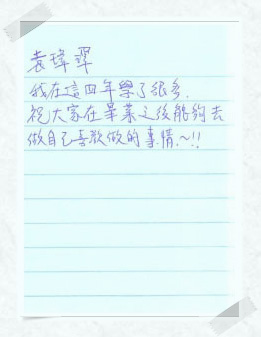 袁瑋琿
我在這四年學了很多.
祝大家在畢業之後能夠去
做自己喜歡做的事情~!!